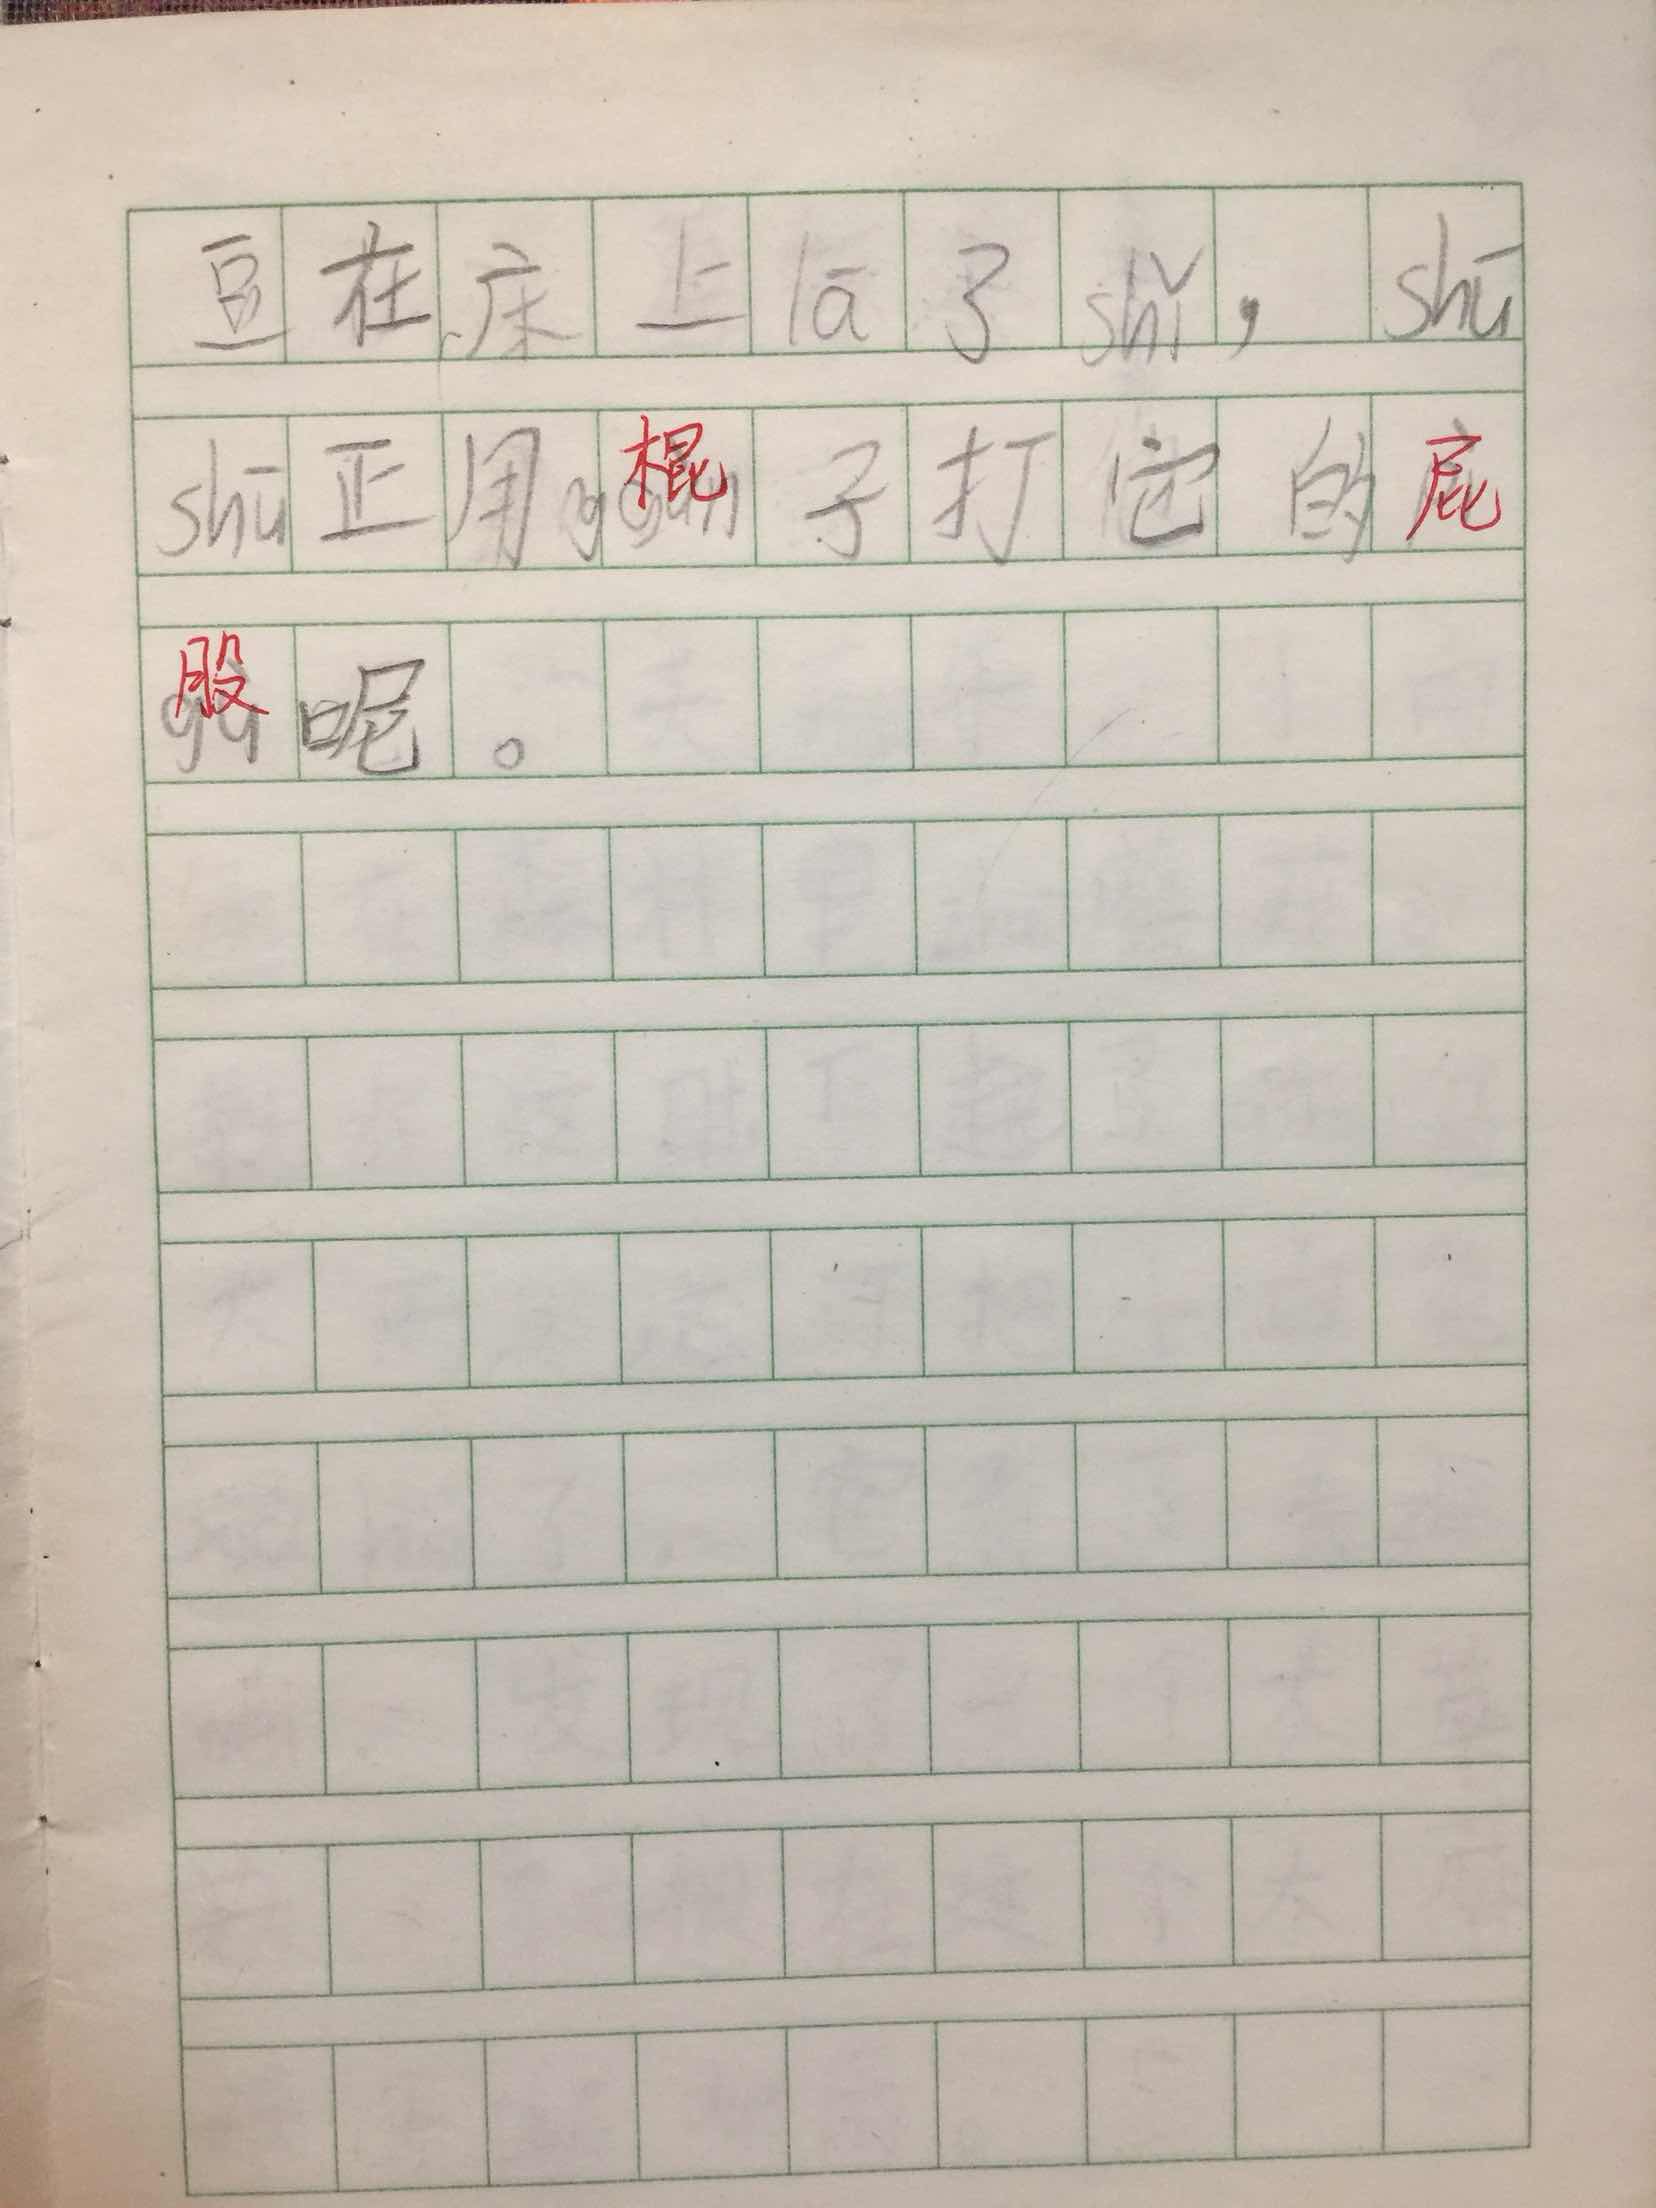 豆在床上lā了shǐ，shū
shū正用棍子打它的屁
股呢。